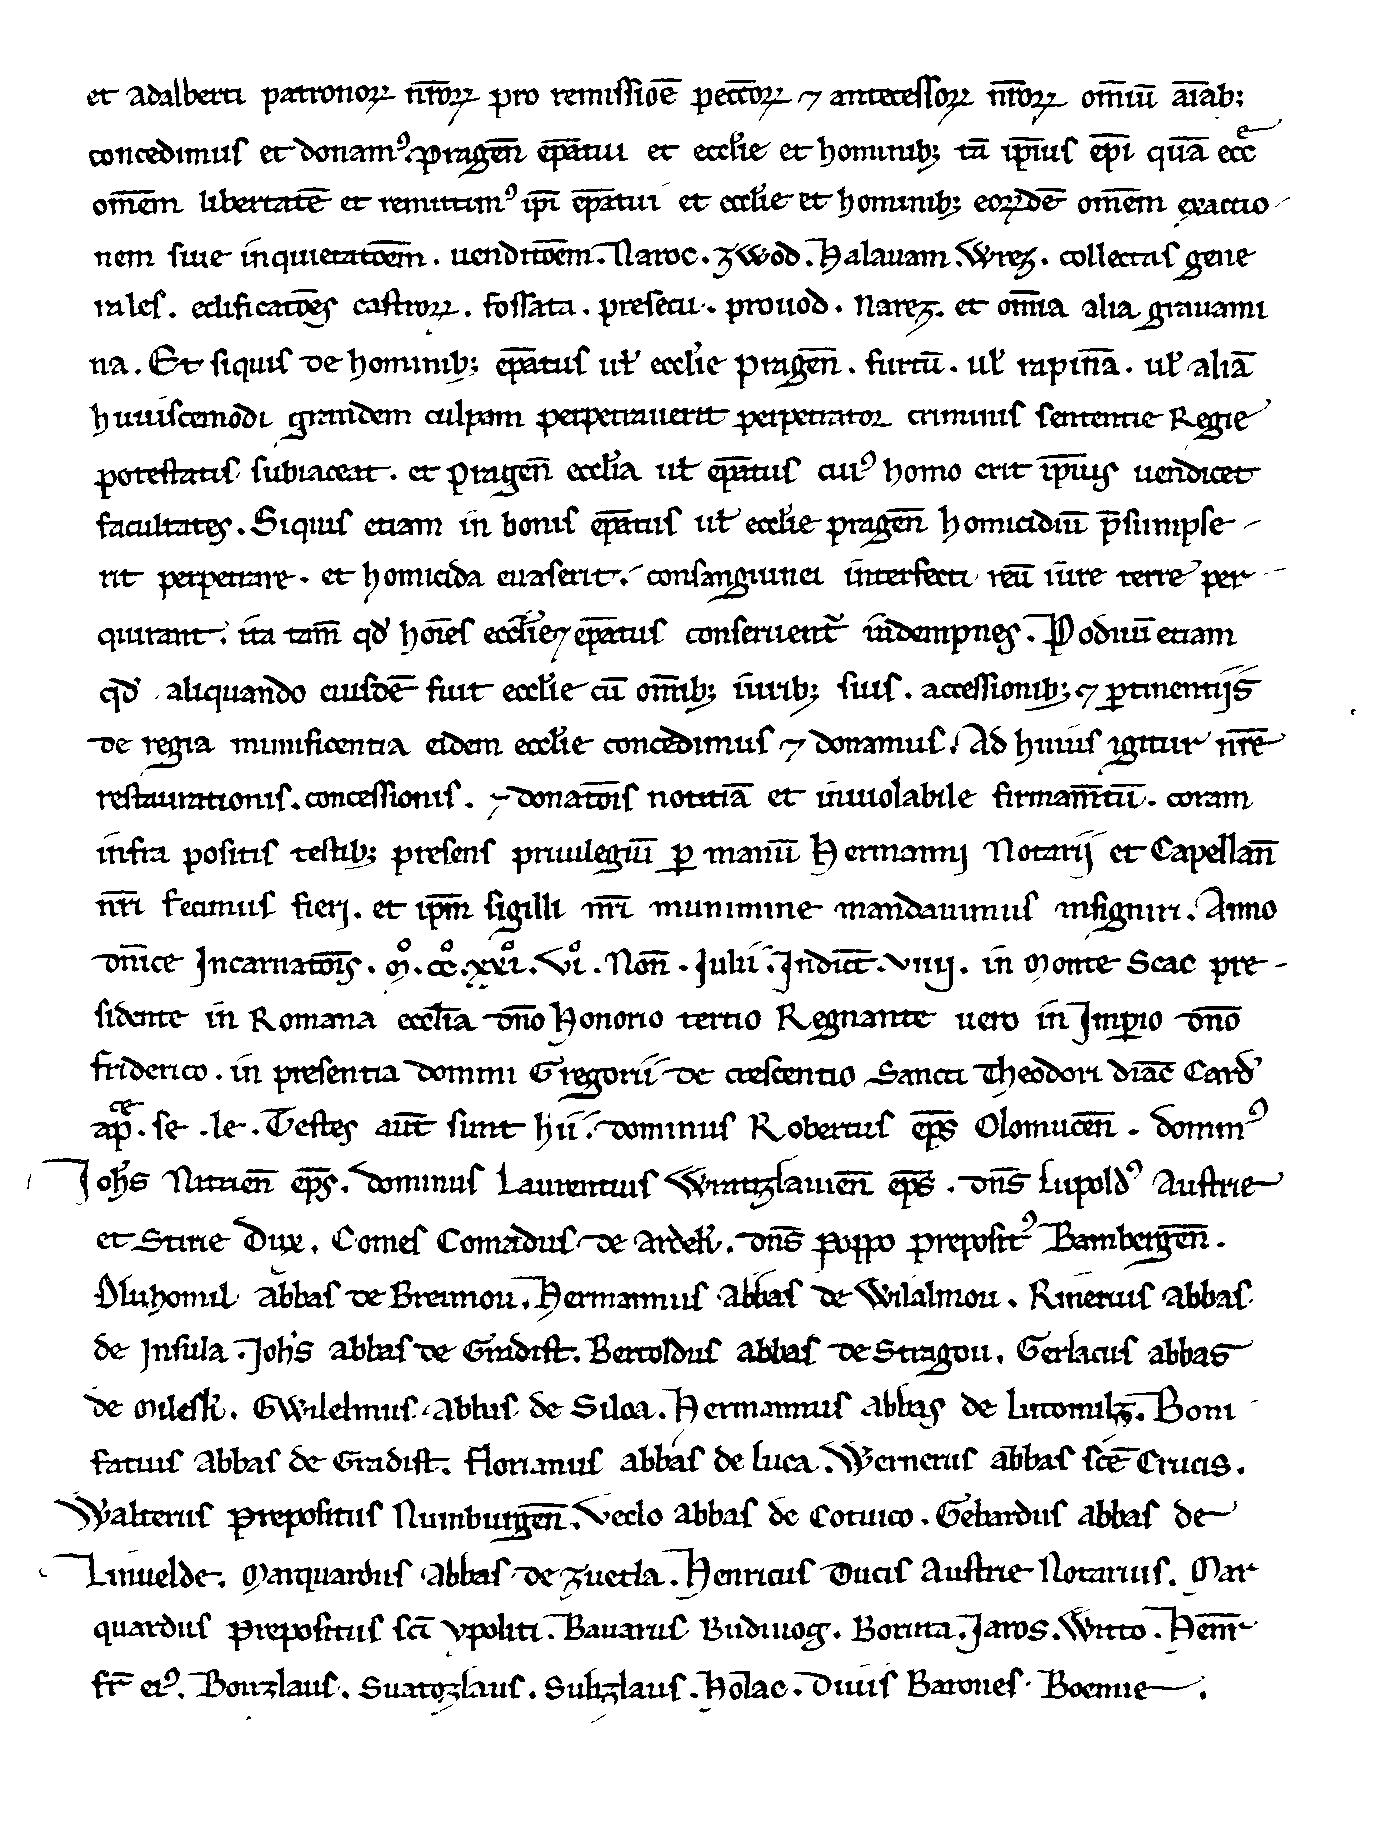 et adalberti patronoꝝ nr̄oꝝ pro remissiōe peccōꝝ ⁊ antecessoꝝ nr̄oꝝ om̄iū aīab;
concedimus et donamꝰ. pragen̄ ep̄atui et eccl̄ie et hominib; tā ip̄ius ep̄i quā ecce
om̄em libertatē et remittimꝰ ip̄i ep̄atui et eccl̄ie et hominib; eoꝝdē om̄em exactio
nem siue inquietatōem. uenditōem. Naroc. zwod. Halauam. Wrez. collectas gene
rales. edificatōes castroꝝ. fossata. presecu. prouod. narez. et om̄ia alia grauami
na. Et siquis de hominib; ep̄atus ul̄ eccl̄ie pragen̄. furtū. ul̄ rapinā. ul̄ aliā
huiuscemodi grandem culpam perpetrauerit perpetrator criminis sententie Regie
potestatis subiaceat. et pragen̄ eccl̄ia ul̄ ep̄atus cuiꝰ homo erit ip̄ius uendicet
facultates. Siquis etiam in bonis ep̄atus ul̄ eccl̄ie pragen̄ homicidiū p̄sumpse
rit perpetrare. et homicida euaserit. consanguinei interfecti reū iure terre per
quirant. ita tam̄ qd̄ hoīes eccl̄ie ⁊ ep̄atus conseruent̄ indempnes. Podiuī etiam
qd̄ aliquando eiusdē fuit eccl̄ie cū om̄ib; iurib; suis. accessionib; ⁊ ꝑtinentijs
de regia munificentia eidem eccl̄ie concedimus ⁊ donamus. Ad huius igitur nr̄e
restaurationis. concessionis. ⁊ donatōis notitiā et inuiolabile firmam̄tū. coram
infra positis testib; presens priuilegiū ꝑ manū Hermanni Notarii et Capellan̄
nr̄i fecimus fieri. et ip̄m sigilli nr̄i munimine mandauimus insigniri. Anno
dn̄ice Incarnatōis. Mº. ccº. xxiº. viº. Non̄. Julii. Indict̄. viiij. in Monte Scac pre
sidente in Romana eccl̄ia dn̄o Honorio tertio Regnante uero in Imꝑio dn̄o
friderico. in presentia domini Gregorii de crescentio Sancti Theodori diac̄ Card̄
ap̄ce. se. le. Testes aut̄ sunt hii. dominus Robertus ep̄s Olomucen̄. dominꝰ
Joh̄s Nitrien̄ ep̄s. dominus Laurentius Wratizlauien̄ ep̄s. dn̄s Lupoldꝰ Austrie
et Stirie Dux. Comes Comradus de Ardek. dn̄s Poppo prepositꝰ Bambergen̄.
Dluhomil abbas de Breunou. Hermannus abbas de Wilalmou. Rinerus abbas
de Insula. Joh̄s abbas de Gradist. Bertoldus abbas de Stragou. Gerlacus abbas
de Milesk. GWilelmus abbas de Siloa. Hermannus abbas de Lutomulz. Boni
fatius abbas de Gradist. florianus abbas de luca. Wernerus abbas sc̄e Crucis.
Walterus prepositus Numburgen̄. Veclo abbas de Cotuico. Gebardus abbas de
Liniuelde. Marquardus abbas de zuetla. Henricus Ducis Austrie Notarius. Mar
quardus prepositus sc̄i ypoliti. Bauarus. Budiuog. Boruta. Jaros. Witto. Henr̄
fr̄ eiꝰ. Bouzlaus. Suatozlaus. Sulizlaus. Holac. Diuis Barones Boemie.